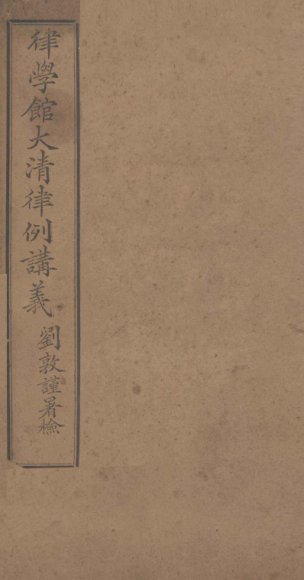 律學館大清律例講義
劉敦謹署檢